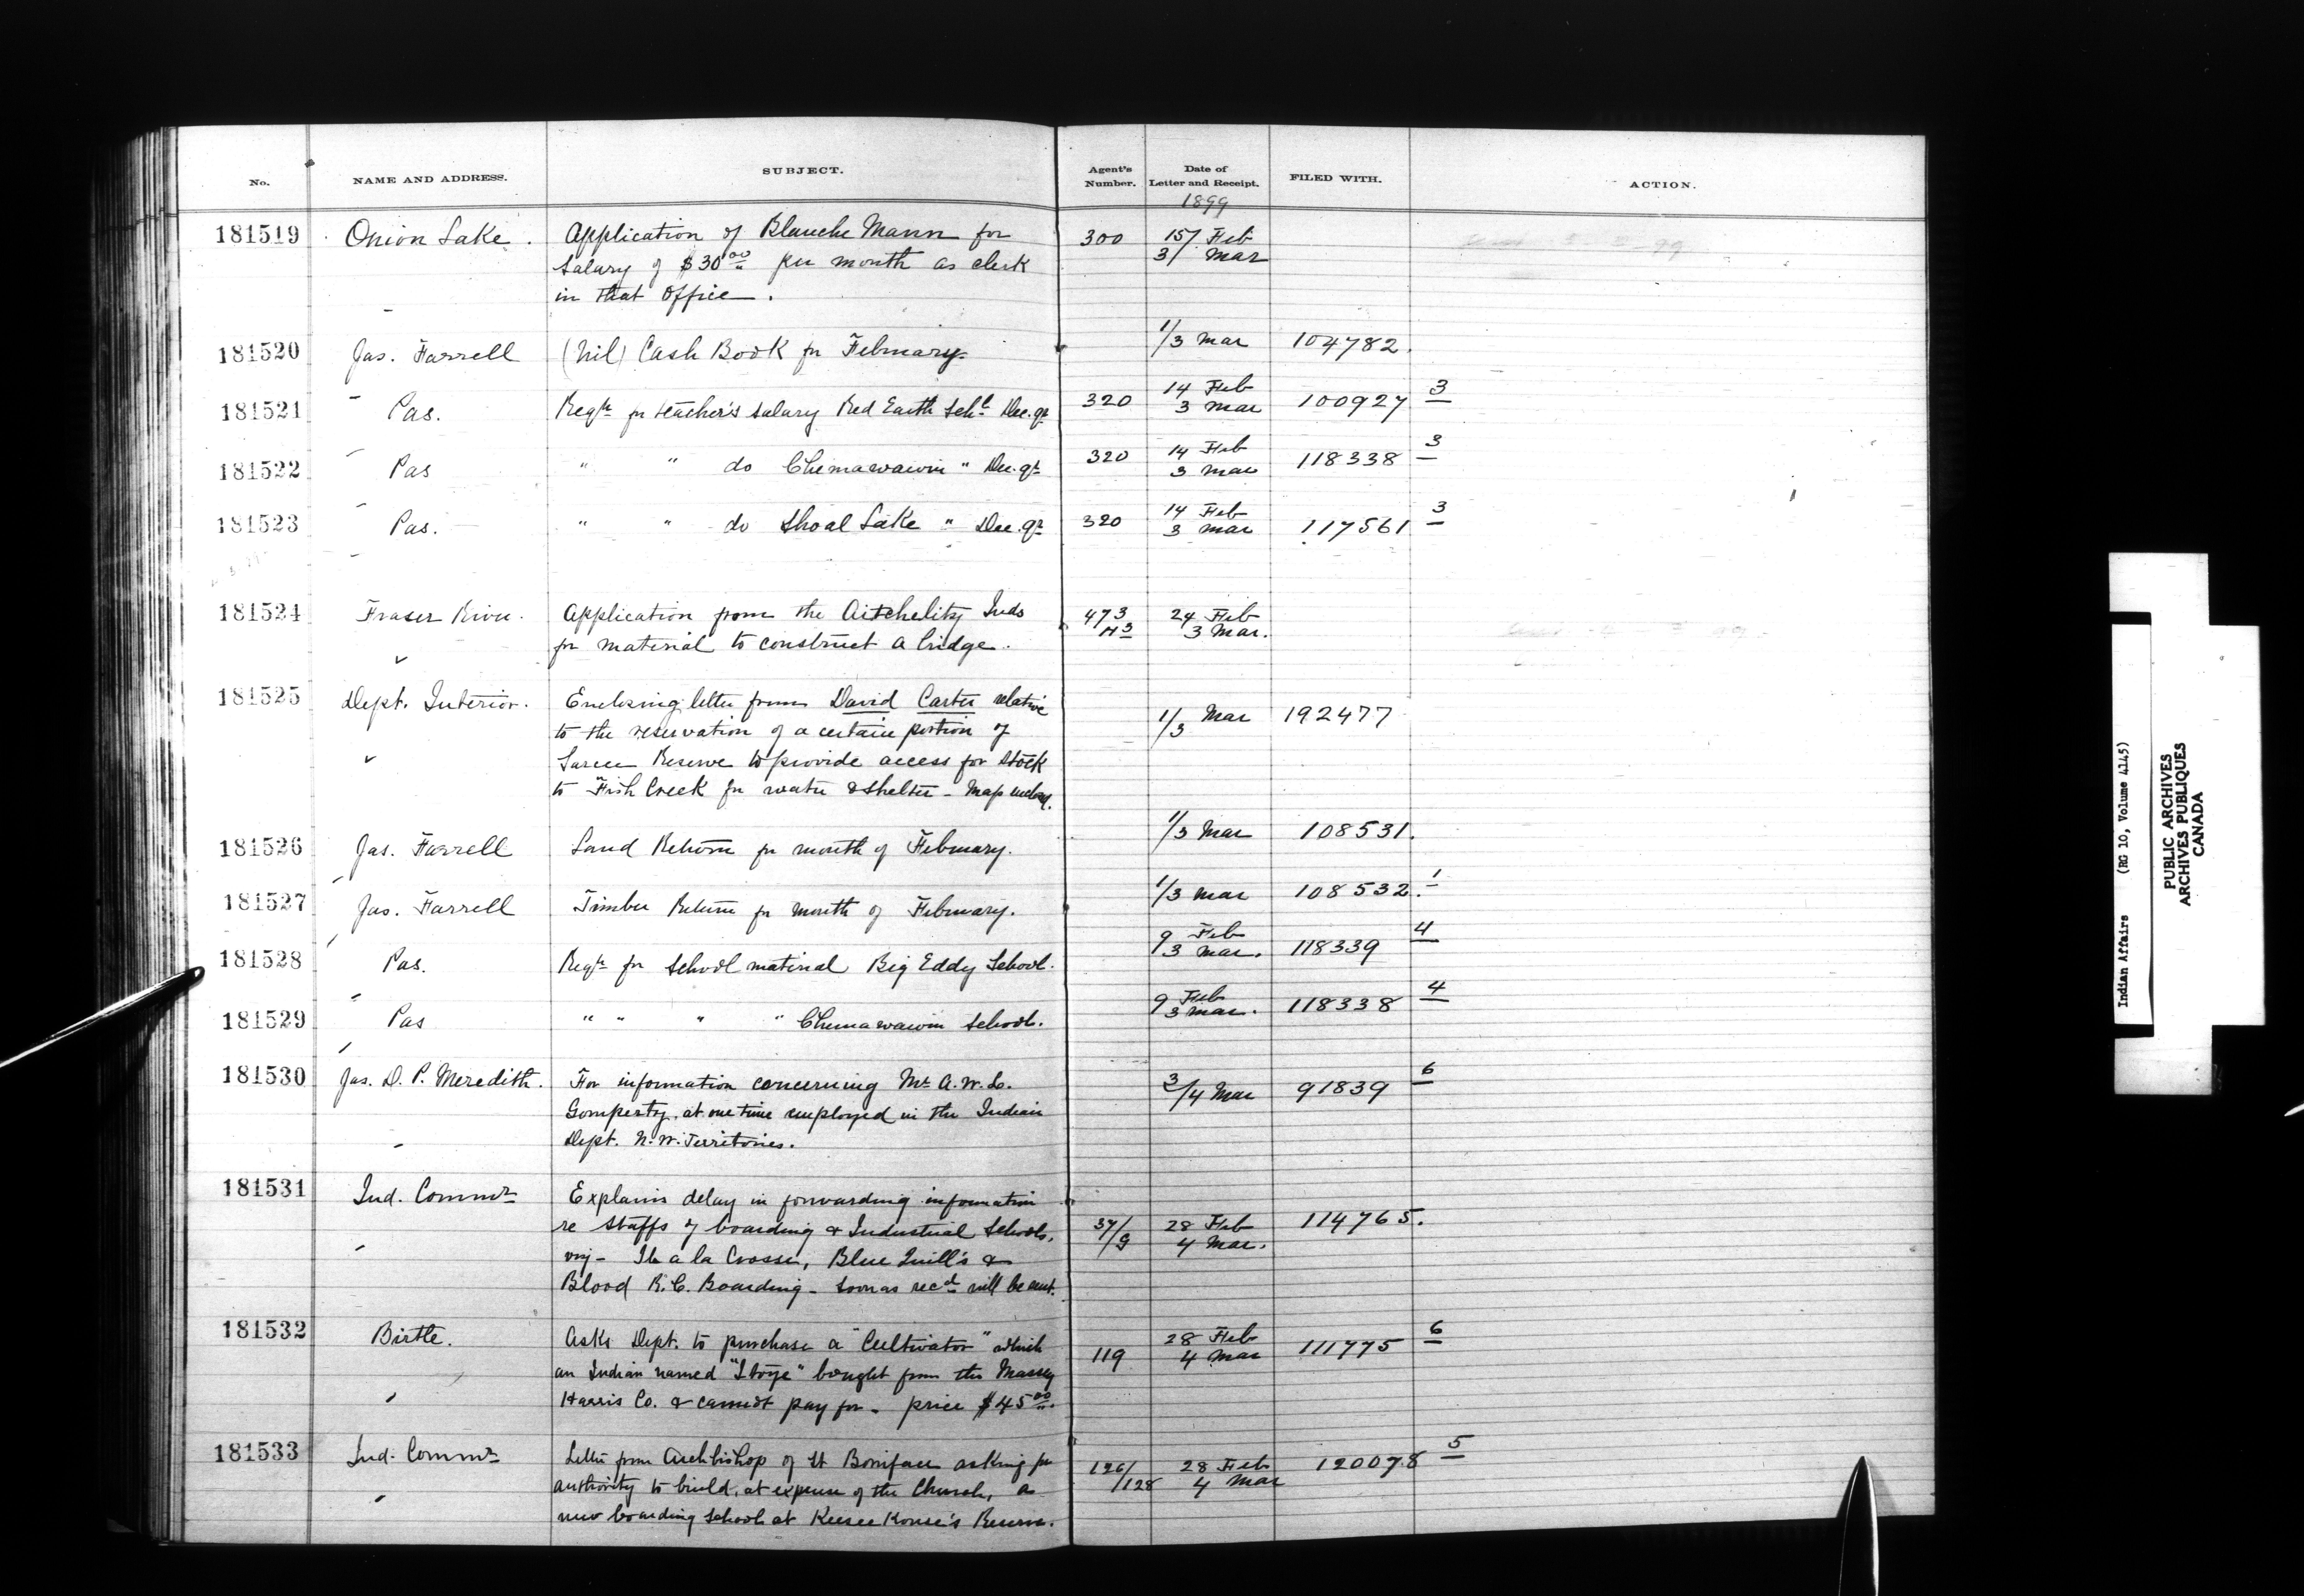 No. NAME AND ADDRESS. SUBJECT. Agent's Number. Date of Letter and Receipt. FILED WITH. ACTION.
1899
181519 Onion Lake. Application of Blanche Mann for 300 15/ Feb
salary of $30.00 per month as clerk 3/ Mar
in that office.
181520 Jas. Farrell (Nil) Cash Book for February 1/3 Mar 104782.
181521 Pas. Reqn for teacher's salary Red Earth Schl Dec. qr 320 14 Feb 3 Mar 100927 3
181522 Pas " " do Chemawawin " Dec. qr 320 14 Feb 3 Mar 118338 3
181523 Pas. " " do Shoal Lake " Dec. qr 320 14 Feb 3 Mar 117561 3
181524 Fraser River. Application from the Aitchelitz Inds 473 H3 24 Feb
for material to construct a bridge. 3 Mar.
181525 Dept. Interior. Enclosing letter from David Carter relative
to the reservation of a certain portion of 1/3 Mar 192477
Sarcee Reserve to provide access for stock
to Fish Creek for water & shelter - Map enclosed.
181526 Jas. Farrell Land Return for month of February. 1/3 Mar 108531.
181527 Jas. Farrell Timber Return for month of February. 1/3 Mar 108532. 1
181528 Pas. Reqn for school material Big Eddy School. 9 Feb 3 Mar. 118339 4
181529 Pas " " " " Chemawawin School. 9 Feb 3 Mar. 118338 4
181530 Jas. D. P. Meredith. For information concerning Mr. A. W. L. 3/4 Mar 91839 6
Gompertz, at one time employed in the Indian
Dept. N. W. Territories.
181531 Ind. Commr Explains delay in forwarding information
re staffs of boarding & Industrial Schools, 37/9 28 Feb 4 Mar. 114765.
viz - Ile a la Crosse, Blue Quill's &
Blood R. C. Boarding - soon as recd will be sent.
181532 Birtle. Asks Dept. to purchase a "Cultivator" which 119 28 Feb 4 Mar 111775 6
an Indian named bought from the Massey
Harris Co. & cannot pay for - price $45.00.
181533 Ind. Commr Letter from Archbishop of St Boniface asking for 126/128 28 Feb 4 Mar 120078 5
authority to build, at expense of the Church, a
new boarding school at Keeseekouse's Reserve.
Indian Affairs (RG 10, Volume 4145)
PUBLIC ARCHIVES
ARCHIVES PUBLIQUES
CANADA